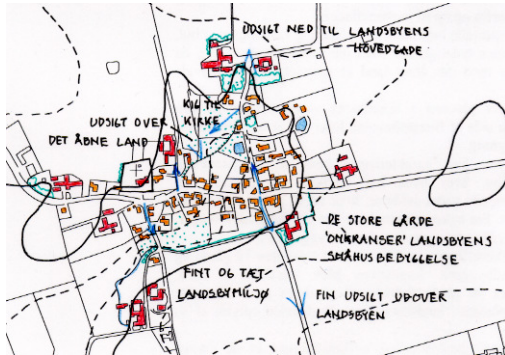 UDSIGT NED TIL LANDSBYENS
HOVEDGADE
KIG TIL
KIRKE
UDSIGT OVER
DET ÅBNE LAND
DE STORE GÅRDE
'OMKRANSER' LANDSBYENS
SMÅHUSBEBYGGELSE
FINT OG TÆT
LANDSBYMILJØ
FIN UDSIGT UDOVER
LANDSBYEN